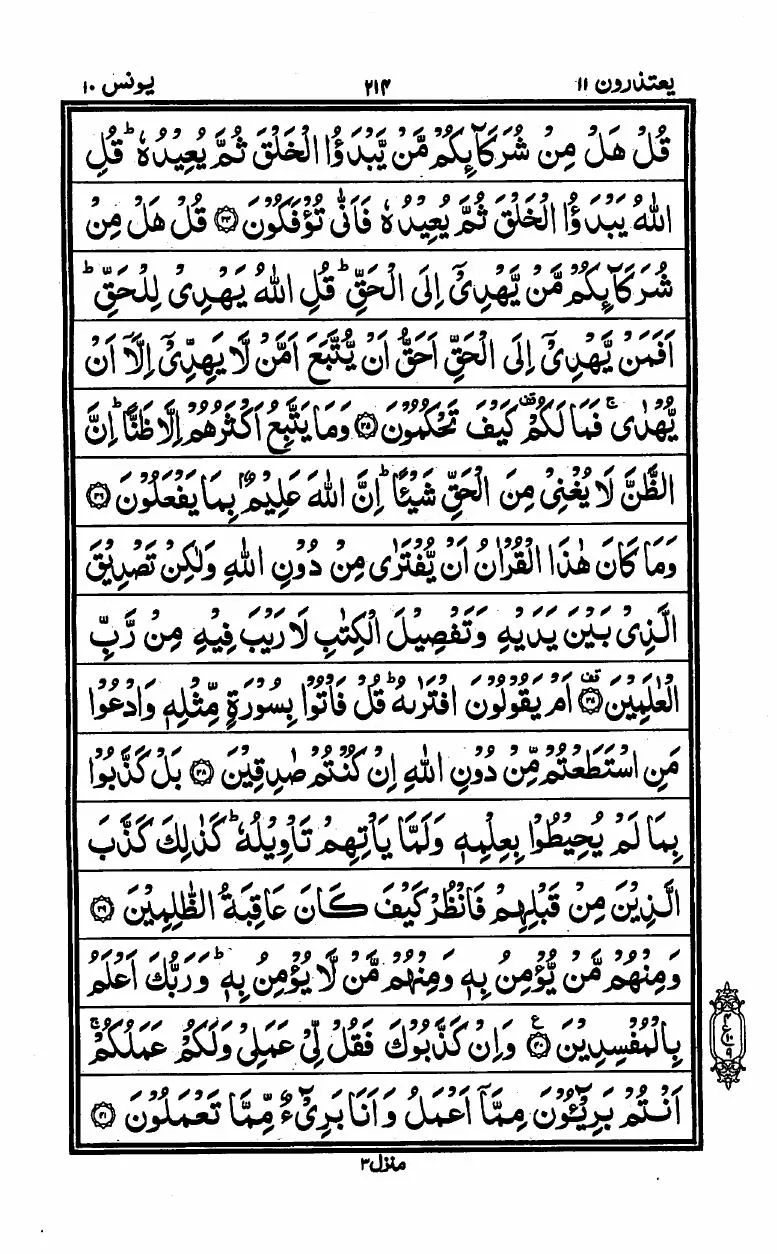 یعتذرون ۱۱ ۲۱۴ یونس ۱۰
قُلْ هَلْ مِنْ شُرَكَآىِٕكُمْ مَّنْ یَّبْدَؤُا الْخَلْقَ ثُمَّ یُعِیْدُهٗ ؕ قُلِ
اللّٰهُ یَبْدَؤُا الْخَلْقَ ثُمَّ یُعِیْدُهٗ فَاَنّٰى تُؤْفَكُوْنَ ۝۳۴ قُلْ هَلْ مِنْ
شُرَكَآىِٕكُمْ مَّنْ یَّهْدِیْۤ اِلَى الْحَقِّ ؕ قُلِ اللّٰهُ یَهْدِیْ لِلْحَقِّ ؕ
اَفَمَنْ یَّهْدِیْۤ اِلَى الْحَقِّ اَحَقُّ اَنْ یُّتَّبَعَ اَمَّنْ لَّا یَهِدِّیْۤ اِلَّاۤ اَنْ
یُّهْدٰى ۚ فَمَا لَكُمْ ۫ كَیْفَ تَحْكُمُوْنَ ۝۳۵ وَمَا یَتَّبِعُ اَكْثَرُهُمْ اِلَّا ظَنًّا ؕ اِنَّ
الظَّنَّ لَا یُغْنِیْ مِنَ الْحَقِّ شَیْـًٔا ؕ اِنَّ اللّٰهَ عَلِیْمٌۢ بِمَا یَفْعَلُوْنَ ۝۳۶
وَمَا كَانَ هٰذَا الْقُرْاٰنُ اَنْ یُّفْتَرٰى مِنْ دُوْنِ اللّٰهِ وَلٰكِنْ تَصْدِیْقَ
الَّذِیْ بَیْنَ یَدَیْهِ وَتَفْصِیْلَ الْكِتٰبِ لَا رَیْبَ فِیْهِ مِنْ رَّبِّ
الْعٰلَمِیْنَ ۝۳۷ اَمْ یَقُوْلُوْنَ افْتَرٰىهُ ؕ قُلْ فَاْتُوْا بِسُوْرَةٍ مِّثْلِهٖ وَادْعُوْا
مَنِ اسْتَطَعْتُمْ مِّنْ دُوْنِ اللّٰهِ اِنْ كُنْتُمْ صٰدِقِیْنَ ۝۳۸ بَلْ كَذَّبُوْا
بِمَا لَمْ یُحِیْطُوْا بِعِلْمِهٖ وَلَمَّا یَاْتِهِمْ تَاْوِیْلُهٗ ؕ كَذٰلِكَ كَذَّبَ
الَّذِیْنَ مِنْ قَبْلِهِمْ فَانْظُرْ كَیْفَ كَانَ عَاقِبَةُ الظّٰلِمِیْنَ ۝۳۹
وَمِنْهُمْ مَّنْ یُّؤْمِنُ بِهٖ وَمِنْهُمْ مَّنْ لَّا یُؤْمِنُ بِهٖ ؕ وَرَبُّكَ اَعْلَمُ
بِالْمُفْسِدِیْنَ ۝۴۰ وَاِنْ كَذَّبُوْكَ فَقُلْ لِّیْ عَمَلِیْ وَلَكُمْ عَمَلُكُمْ ۚ
اَنْتُمْ بَرِیْٓـُٔوْنَ مِمَّاۤ اَعْمَلُ وَاَنَا بَرِیْٓءٌ مِّمَّا تَعْمَلُوْنَ ۝۴۱
۴ ع ۱۰ ۹
منزل ۳